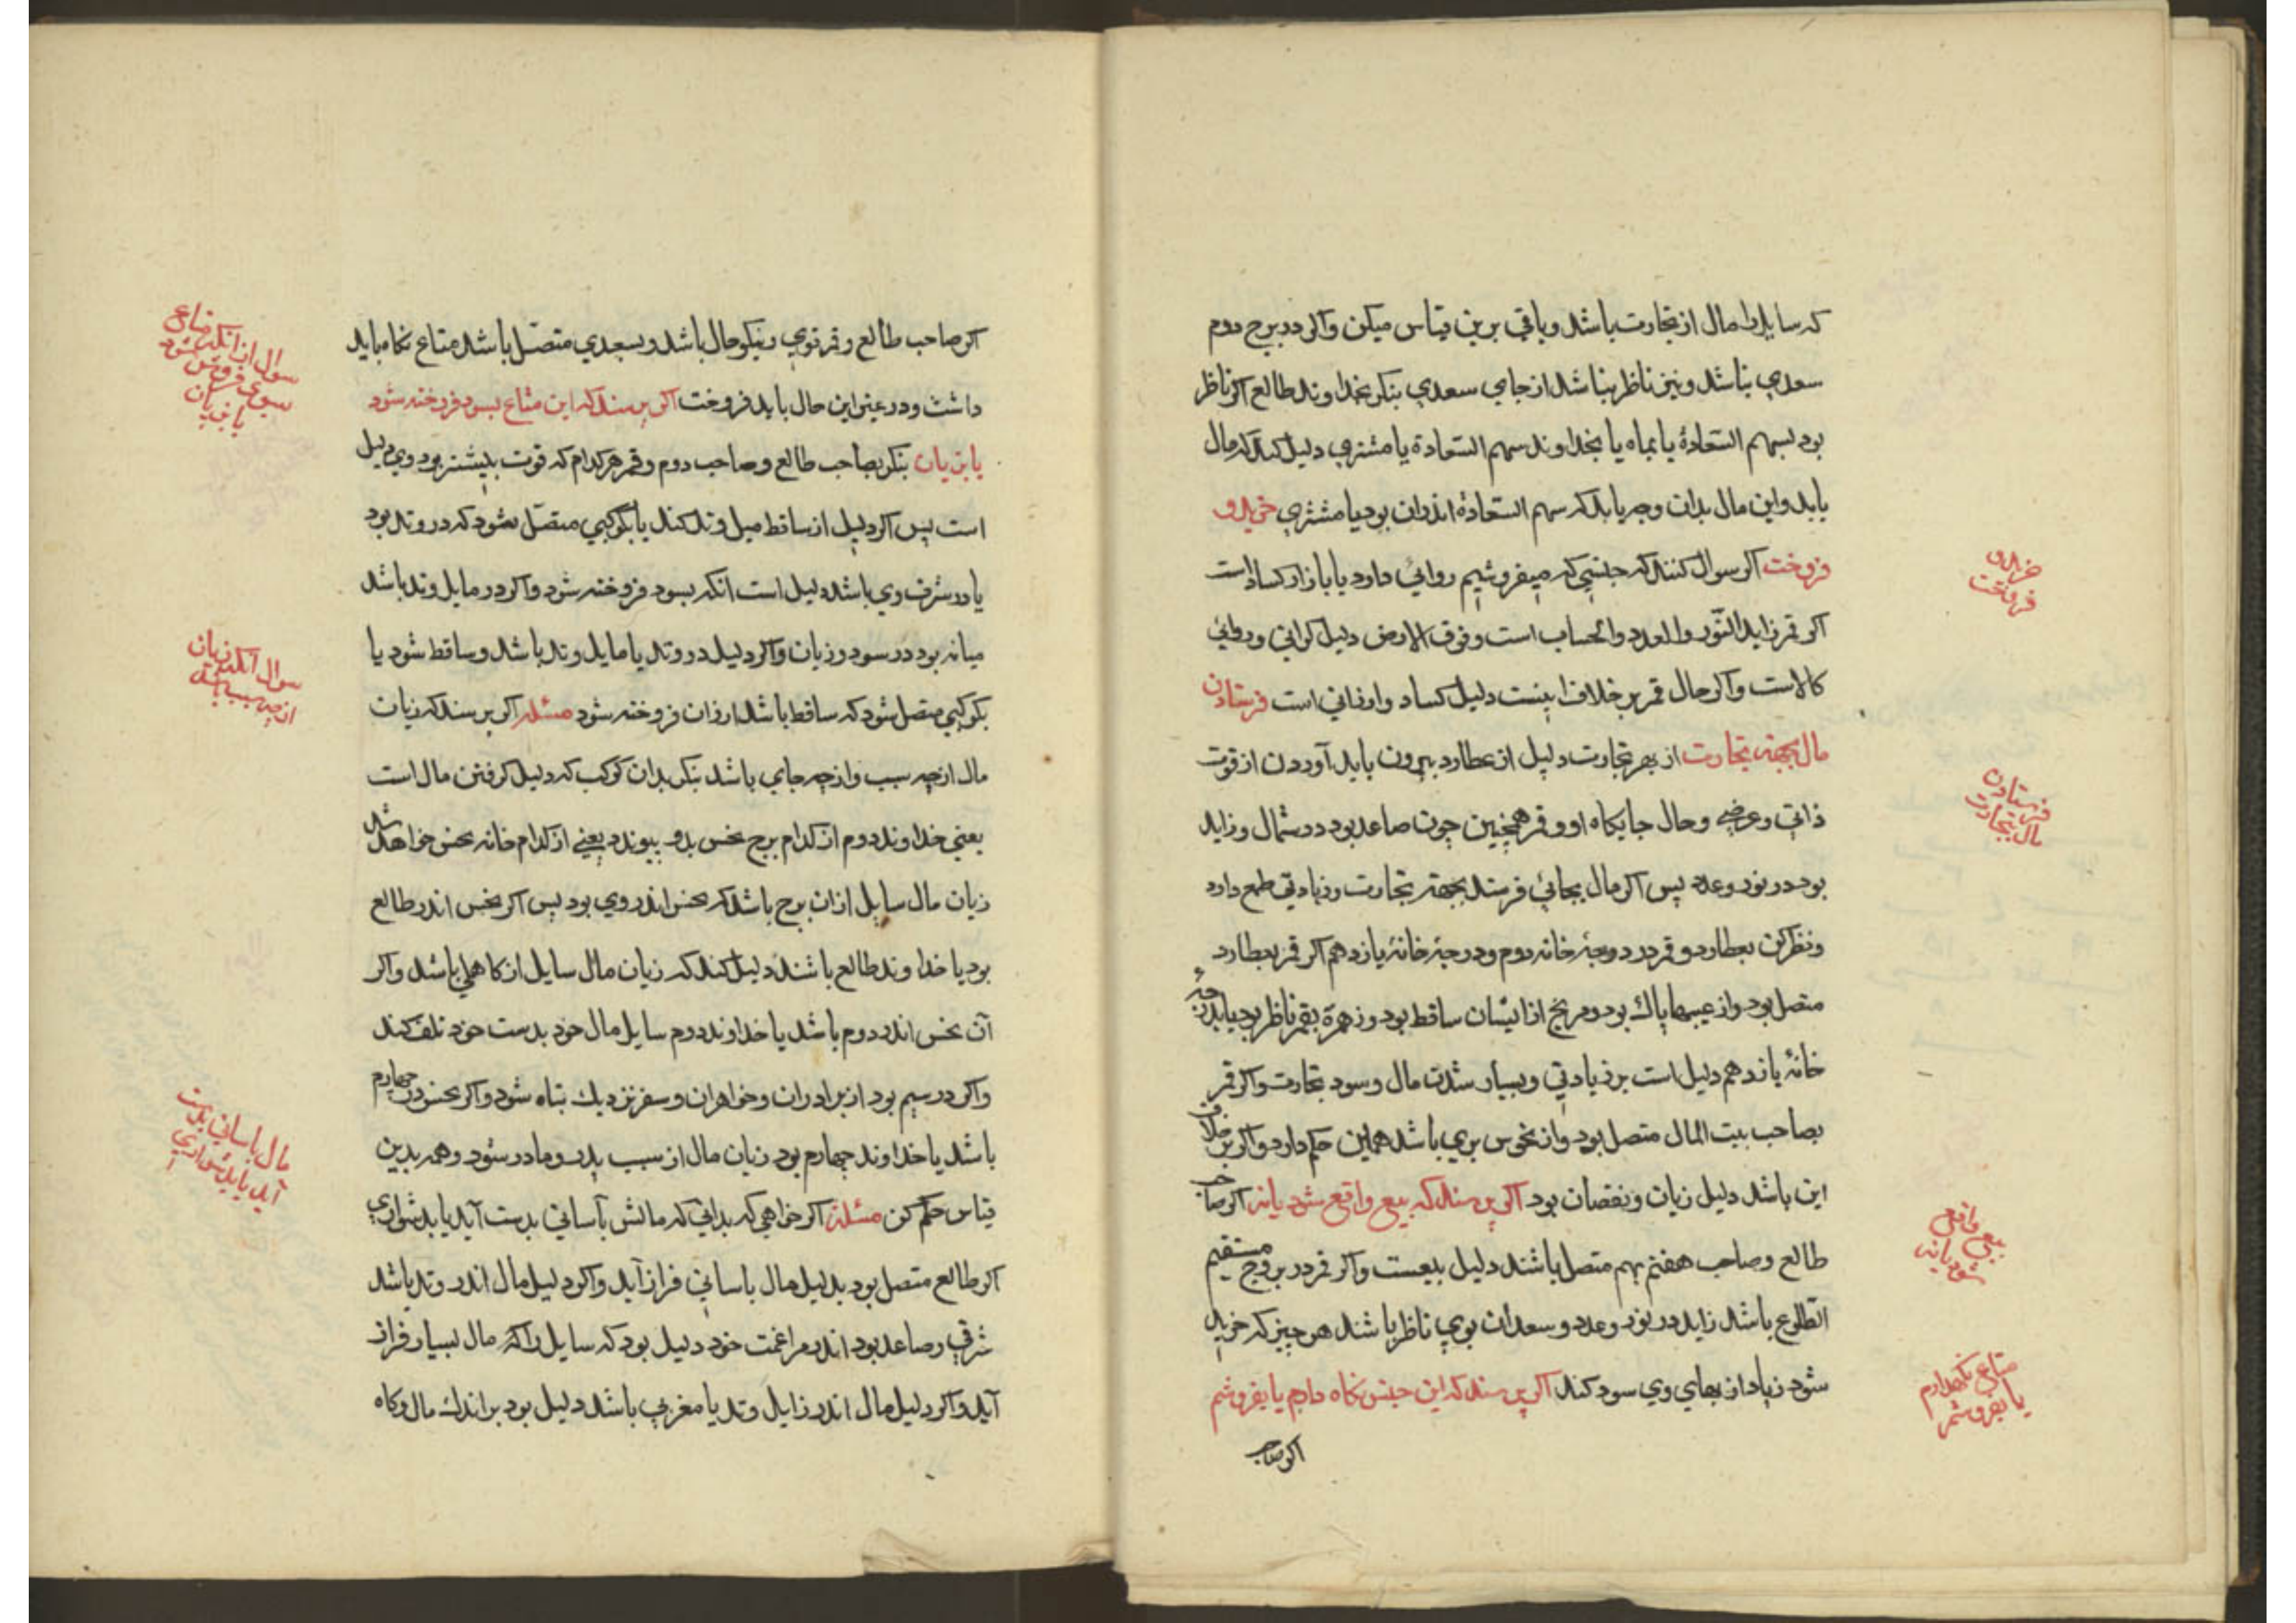 که سایل را مال از تجارت باشد و باقی برین قیاس میکن واکر در برج دوم
سعدی نباشد و نیز ناظر نباشد از جای سعدی بنکر بخداوند طالع اکر ناظر
بود بسهم السّعادة یا بماه یا بخداوند سهم السّعادة یا مشتری دلیل کند که مال
یابد و این مال بدان وجه یابد که سهم السّعادة اندران بود یا مشتری خرید و
فروخت اکر سوال کنند که جنسی که میفروشیم روائی دارد یا بازار کساد است
اکر قمر زاید النّور والعدد والحساب است و فوق الارض دلیل کرانی و روائی
کالاست واکر حال قمر بر خلاف اینست دلیل کساد و ارزانی است فرستادن
مال بجهة تجارت از بهر تجارت دلیل از عطارد بیرون باید آوردن از قوت
ذاتی و عرضی و حال جایکاه او و قمر همچنین چون صاعد بود در شمال و زاید
بود در نور و عدد پس اکر مال بجائی فرستد بجهة تجارت و زیادتی طمع دارد
و نظر کن بعطارد و قمر در درجهٔ خانه دوم و درجهٔ خانهٔ یازدهم اکر قمر بعطارد
متصل بود و از عیبها پاك بود و مریخ از ایشان ساقط بود و زهرة بقمر ناظر بود یا بدرجهٔ
خانهٔ یازدهم دلیل است بر زیادتی و بسیار شدن مال و سود تجارت واکر قمر
بصاحب بیت المال متصل بود و از نحوس بری باشد همین حکم دارد واکر بر خلاف
این باشد دلیل زیان و نقصان بود اکر پرسند که بیع واقع شود یا نه اکر صاحب
طالع و صاحب هفتم بهم متصل باشند دلیل بیعست واکر قمر در بروج مستقیم
الطّلوع باشد زاید در نور و عدد و سعدان بوی ناظر باشند هر چیز که خرید
شود زیاد از بهای وی سود کند اکر پرسند که این جنس نکاه دارم یا بفروشم
اکر صاحب
خرید و
فروخت
فرستادن
مال بتجارت
بیع واقع
شود یا نه
متاع نکهدارم
یا بفروشم
اکر صاحب طالع و قمر قوی و نیکو حال باشد و بسعدی متصل باشد متاع نکاه باید
داشت و در غیر این حال باید فروخت اکر پرسند که این متاع بسود فروخته شود
یا بزیان بنکر بصاحب طالع و صاحب دوم و قمر هر کدام که قوت بیشتر بود وی دلیل
است پس اکر دلیل از ساقط میل وتد کند یا بکوکبی متصل شود که در وتد بود
یا در شرف وی باشد دلیل است انکه بسود فروخته شود واکر در مایل وتد باشد
میانه بود در سود و زیان واکر دلیل در وتد یا مایل وتد باشد و ساقط شود یا
بکوکبی متصل شود که ساقط باشد ارزان فروخته شود مسئله اکر پرسند که زیان
مال از چه سبب و از چه جای باشد بنکر بدان کوکب که دلیل کرفتن مال است
یعنی خداوند دوم از کدام برج نحس بدو پیوندد یعنی از کدام خانه نحس خواهد شد
زیان مال سایل ازان برج باشد که نحس اندر وی بود پس اکر نحس اندر طالع
بود یا خداوند طالع باشند دلیل کند که زیان مال سایل از کاهلی باشد واکر
آن نحس اندر دوم باشد یا خداوند دوم سایل مال خود بدست خود تلف کند
واکر در سیم بود از برادران و خواهران و سفر نزدیك تباه شود واکر نحس در چهارم
باشد یا خداوند چهارم بود زیان مال از سبب پدر و مادر شود و همه بدین
قیاس حکم کن مسئله اکر خواهی که بدانی که مالش بآسانی بدست آید یا بدشواری
اکر طالع متصل بود بدلیل مال باسانی فراز آید واکر دلیل مال اندر وتد باشد
شرقی و صاعد بود اندر مراغمت خود دلیل بود که سایل را که مال بسیار فراز
آید واکر دلیل مال اندر زایل وتد یا مغربی باشد دلیل بود بر اندك مال و کاه
سوال از انکه متاع
بسود فروش شود
یا بزیان
سوال انکه زیان
از چه سبب باشد
مال باسانی بدست
آید یا بدشواری